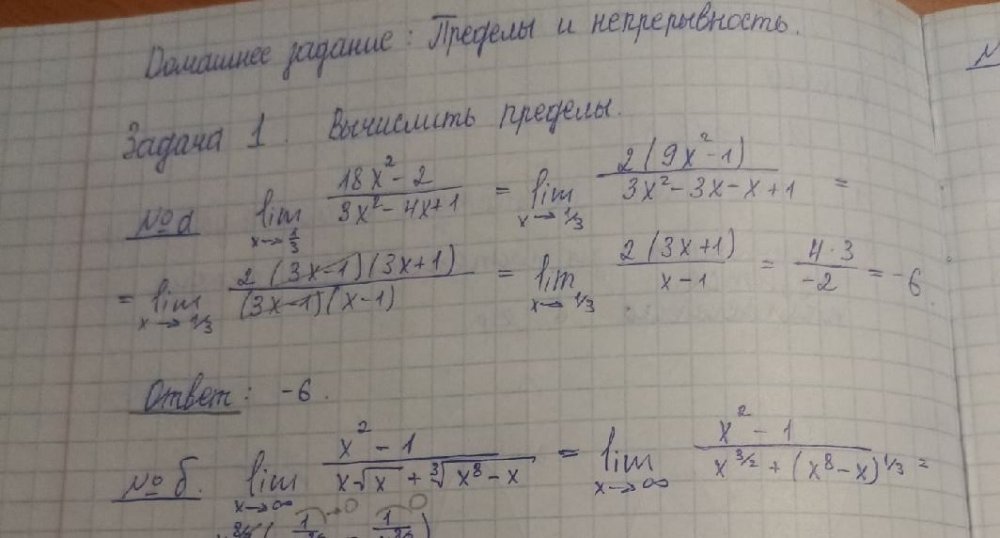 Домашнее задание: Пределы и непрерывность.
Задача 1. Вычислить пределы.
№ а lim x→1/3 (18x² - 2)/(3x² - 4x + 1) = lim x→1/3 2(9x² - 1)/(3x² - 3x - x + 1) =
= lim x→1/3 2(3x-1)(3x+1)/(3x-1)(x-1) = lim x→1/3 2(3x+1)/(x-1) = 4·3/-2 = -6.
Ответ: -6.
№ б. lim x→∞ (x² - 1)/(x√x + ∛(x⁸ - x)) = lim x→∞ (x² - 1)/(x^(3/2) + (x⁸ - x)^(1/3)) =